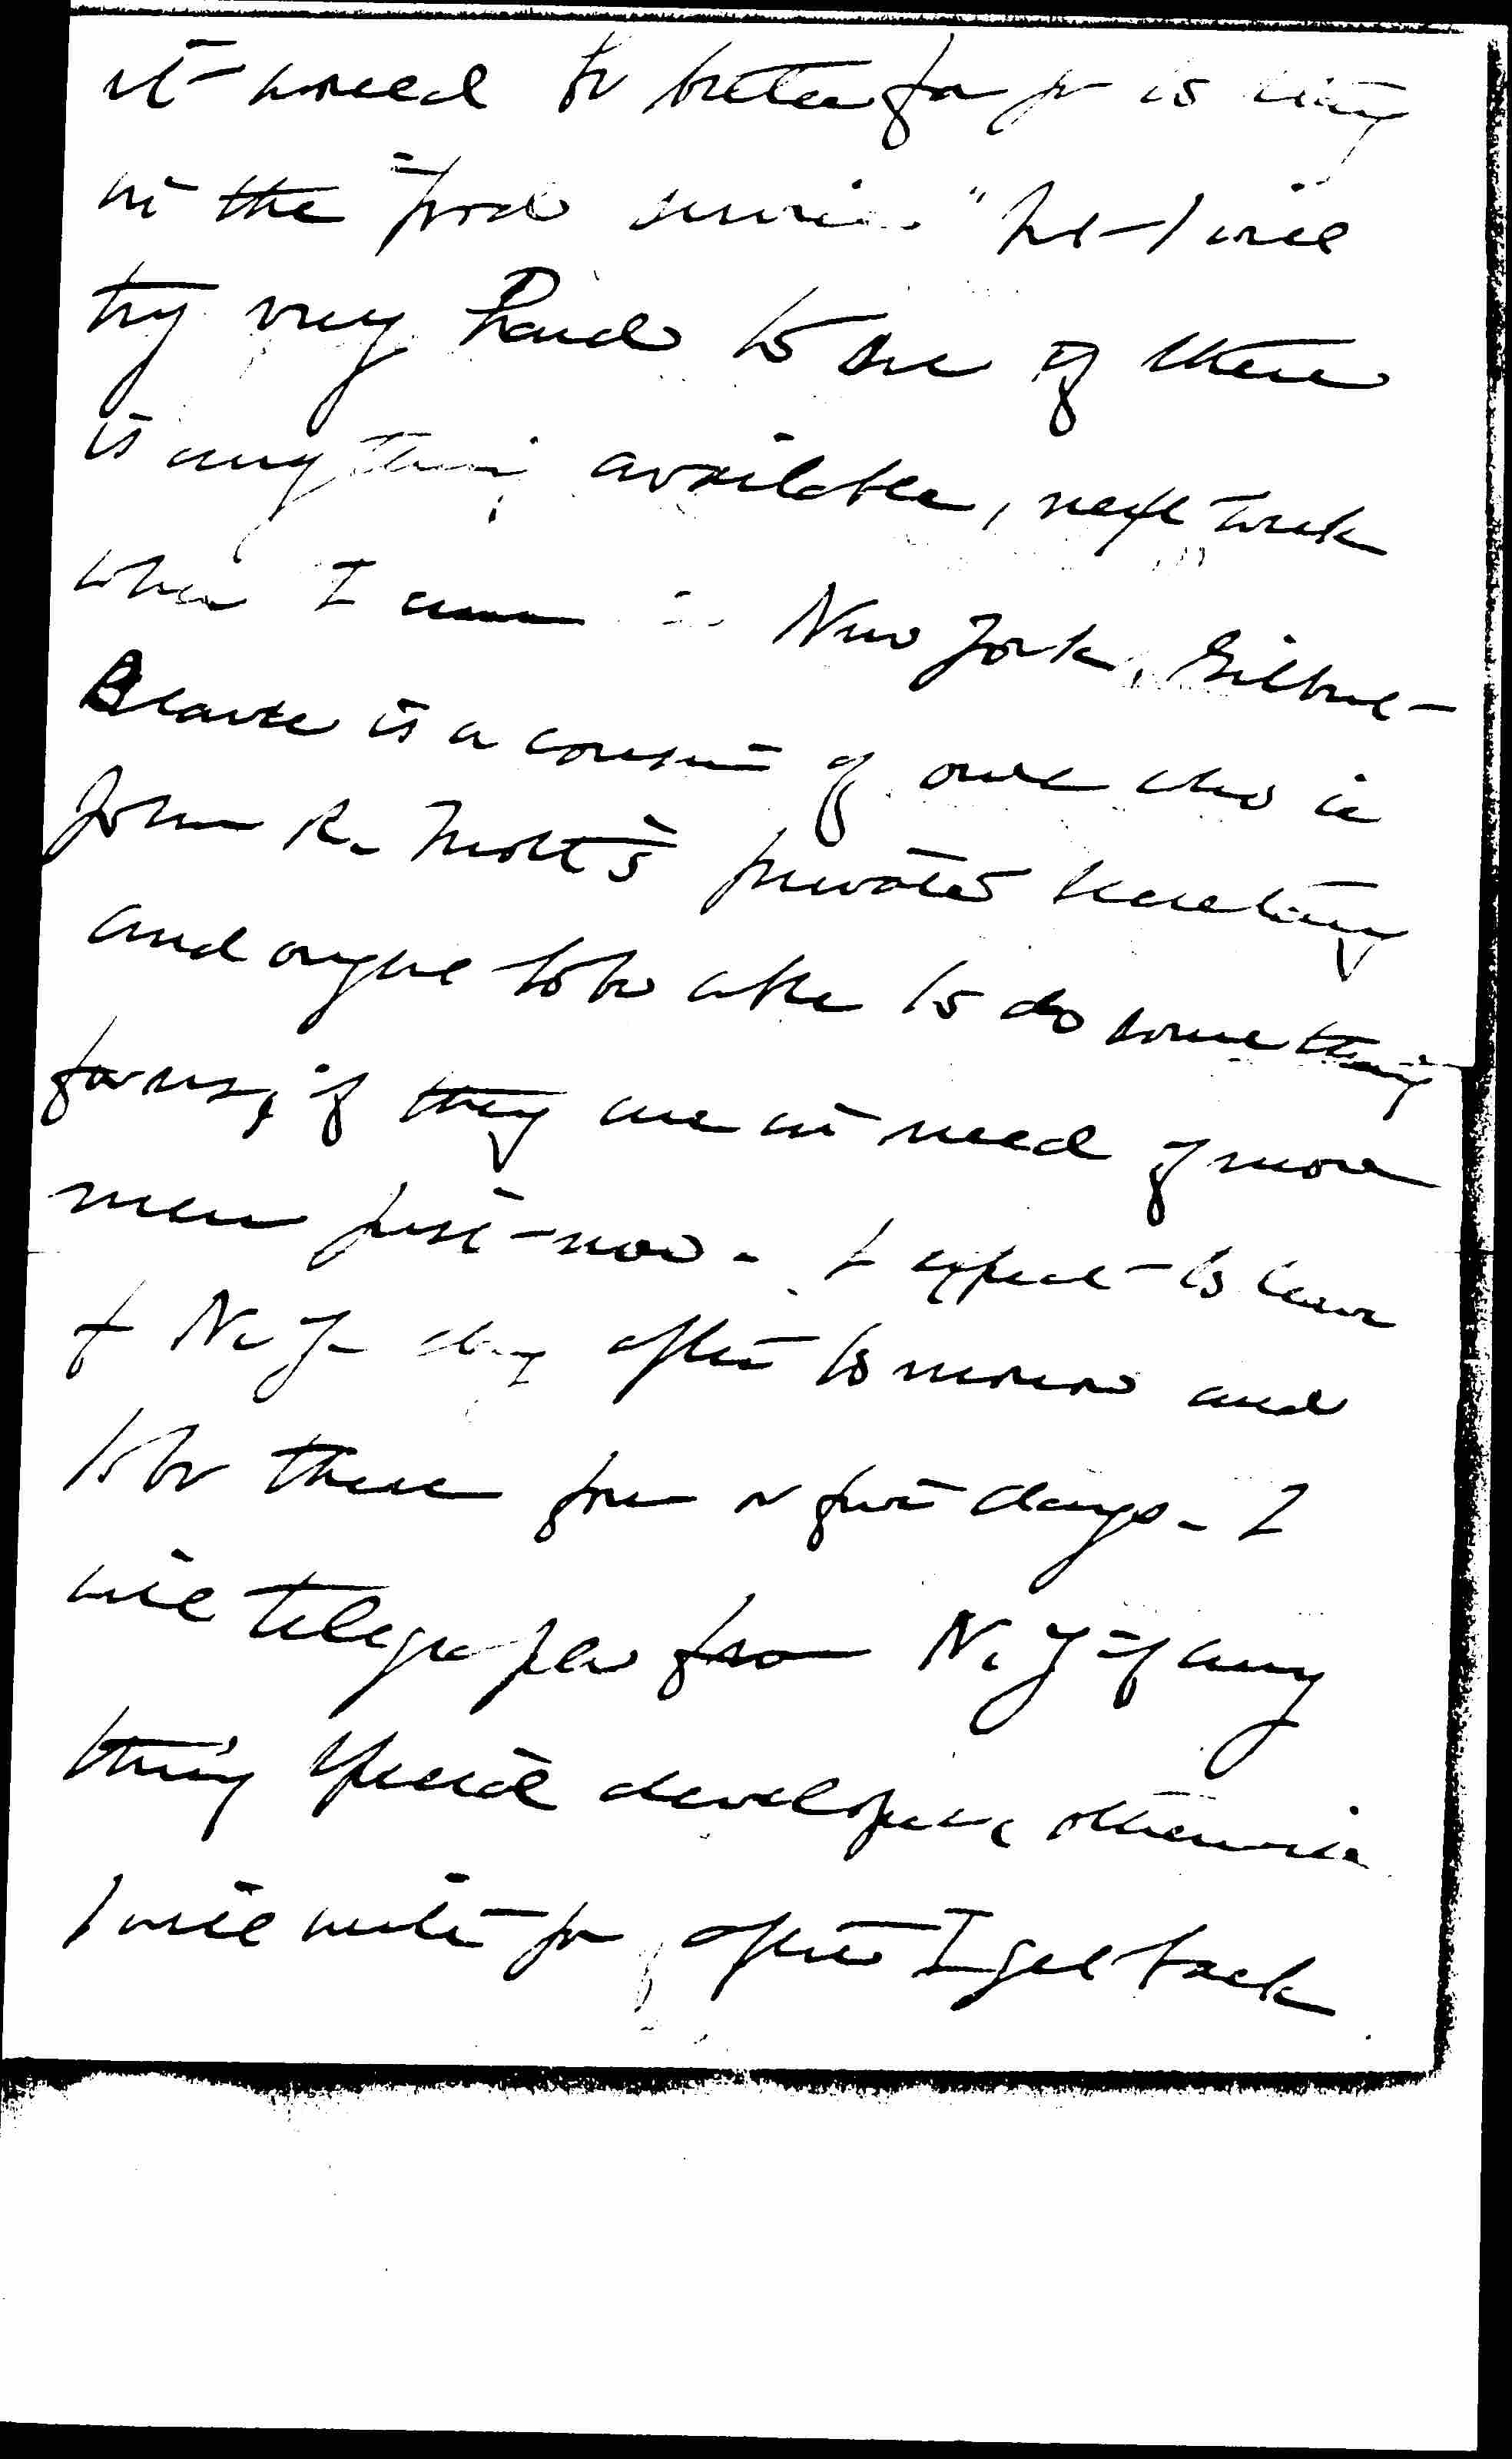 it would be better for you to stay
in the "food service" but I will
try very hard to see if there
is anything available, next week
when I am in New York. Gilbert
is a cousin of ours who is
John R. Mott's private secretary
and ought to be able to do something
for us, if they are in need of more
men just now. I expect to leave
f N.Y. day after tomorrow and
to be there four or five days. I
will telegraph you from N.Y. if any
thing special develops, otherwise
I will write you after I get back